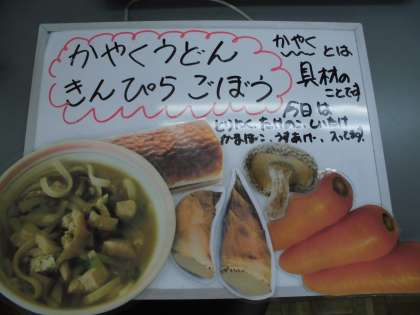 かやくうどん
きんぴらごぼう
かやくとは
具材の
ことです
今日は
とりにく、たけのこ、しいたけ
かまぼこ、うすあげ、入ってます。